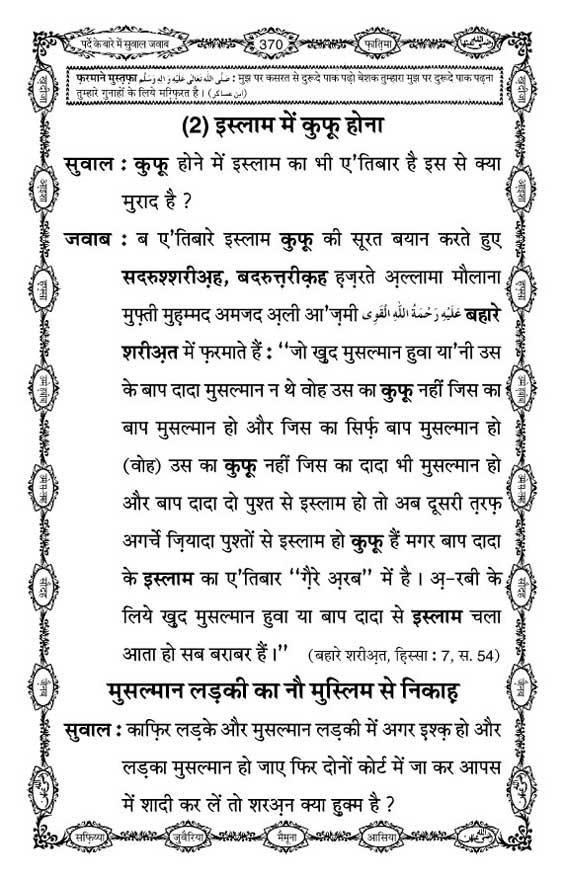 पर्दे के बारे में सुवाल जवाब
370
फ़ातिमा
फ़रमाने मुस्तफ़ा صَلَّى اللهُ تَعَالٰى عَلَيْهِ وَاٰلِهٖ وَسَلَّم : मुझ पर कसरत से दुरूदे पाक पढ़ो बेशक तुम्हारा मुझ पर दुरूदे पाक पढ़ना
तुम्हारे गुनाहों के लिये मग़्फ़िरत है । (ابن عساكر)
(2) इस्लाम में कुफू होना
सुवाल : कुफू होने में इस्लाम का भी ए'तिबार है इस से क्या
मुराद है ?
जवाब : ब ए'तिबारे इस्लाम कुफू की सूरत बयान करते हुए
सदरुश्शरीअ़ह, बदरुत्तरीक़ह हज़रते अ़ल्लामा मौलाना
मुफ़्ती मुहम्मद अमजद अ़ली आ'ज़मी عَلَيْهِ رَحْمَةُ اللهِ الْقَوِى बहारे
शरीअ़त में फ़रमाते हैं : ‘‘जो ख़ुद मुसल्मान हुवा या'नी उस
के बाप दादा मुसल्मान न थे वोह उस का कुफू नहीं जिस का
बाप मुसल्मान हो और जिस का सिर्फ़ बाप मुसल्मान हो
(वोह) उस का कुफू नहीं जिस का दादा भी मुसल्मान हो
और बाप दादा दो पुश्त से इस्लाम हो तो अब दूसरी त़रफ़
अगर्चे ज़ियादा पुश्तों से इस्लाम हो कुफू हैं मगर बाप दादा
के इस्लाम का ए'तिबार ‘‘ग़ैरे अ़रब’’ में है । अ़-रबी के
लिये ख़ुद मुसल्मान हुवा या बाप दादा से इस्लाम चला
आता हो सब बराबर हैं ।’’ (बहारे शरीअ़त, हिस्सा : 7, स. 54)
मुसल्मान लड़की का नौ मुस्लिम से निकाह़
सुवाल : काफ़िर लड़के और मुसल्मान लड़की में अगर इश्क़ हो और
लड़का मुसल्मान हो जाए फिर दोनों कोर्ट में जा कर आपस
में शादी कर लें तो शरअ़न क्या हुक्म है ?
सफ़िय्या
जुवैरिया
मैमूना
आसिया